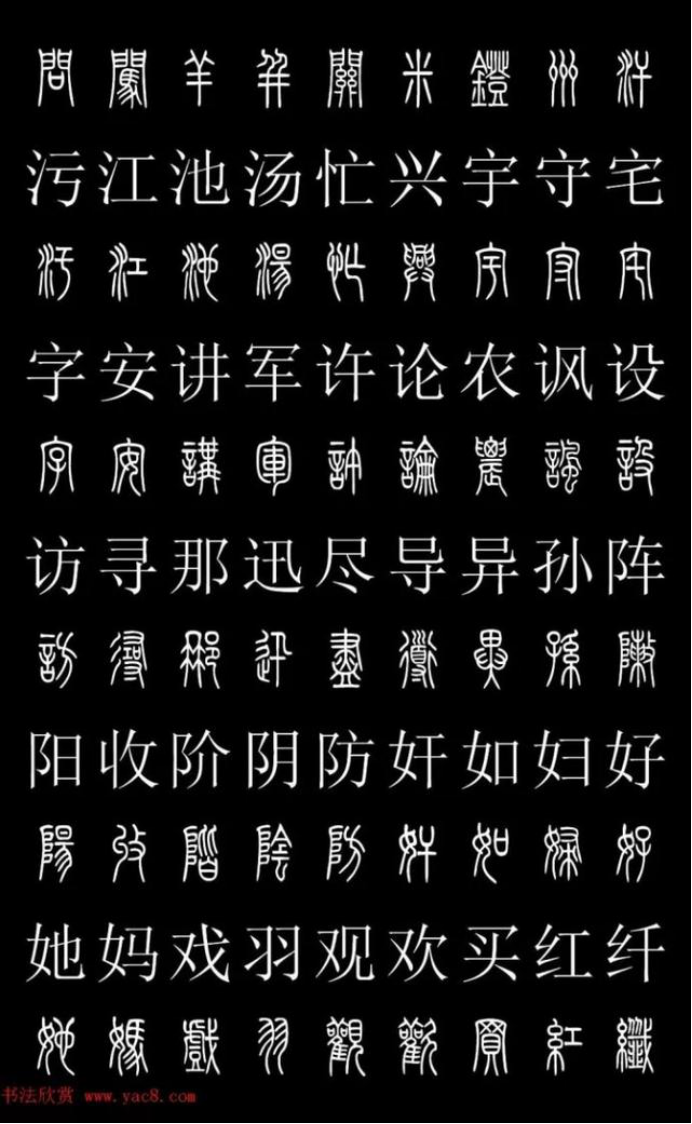 問闖羊并關米鐙州汗
污江池汤忙兴宇守宅
污江池湯忙興宇守宅
字安讲军许论农讽设
字安講軍許論農諷設
访寻那迅尽导异孙阵
訪尋那迅盡導異孫陣
阳收阶阴防奸如妇好
陽收階陰防奸如婦好
她妈戏羽观欢买红纤
她媽戲羽觀歡買紅纖
书法欣赏 www.yac8.com